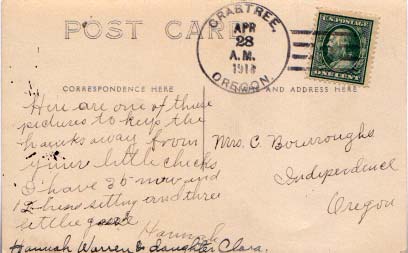 POST CARD
CRABTREE,
APR
28
A.M.
OREGON.
U.S. POSTAGE
ONE CENT
CORRESPONDENCE HERE
AND ADDRESS HERE
Here are one of those
pictures to keep the
hawks away from
your little chicks
I have 25 now and
12 hens sitting and three
little
Hannah
Mrs. C. Burroughs
Independence
Oregon
Hannah Warren & daughter Clara.